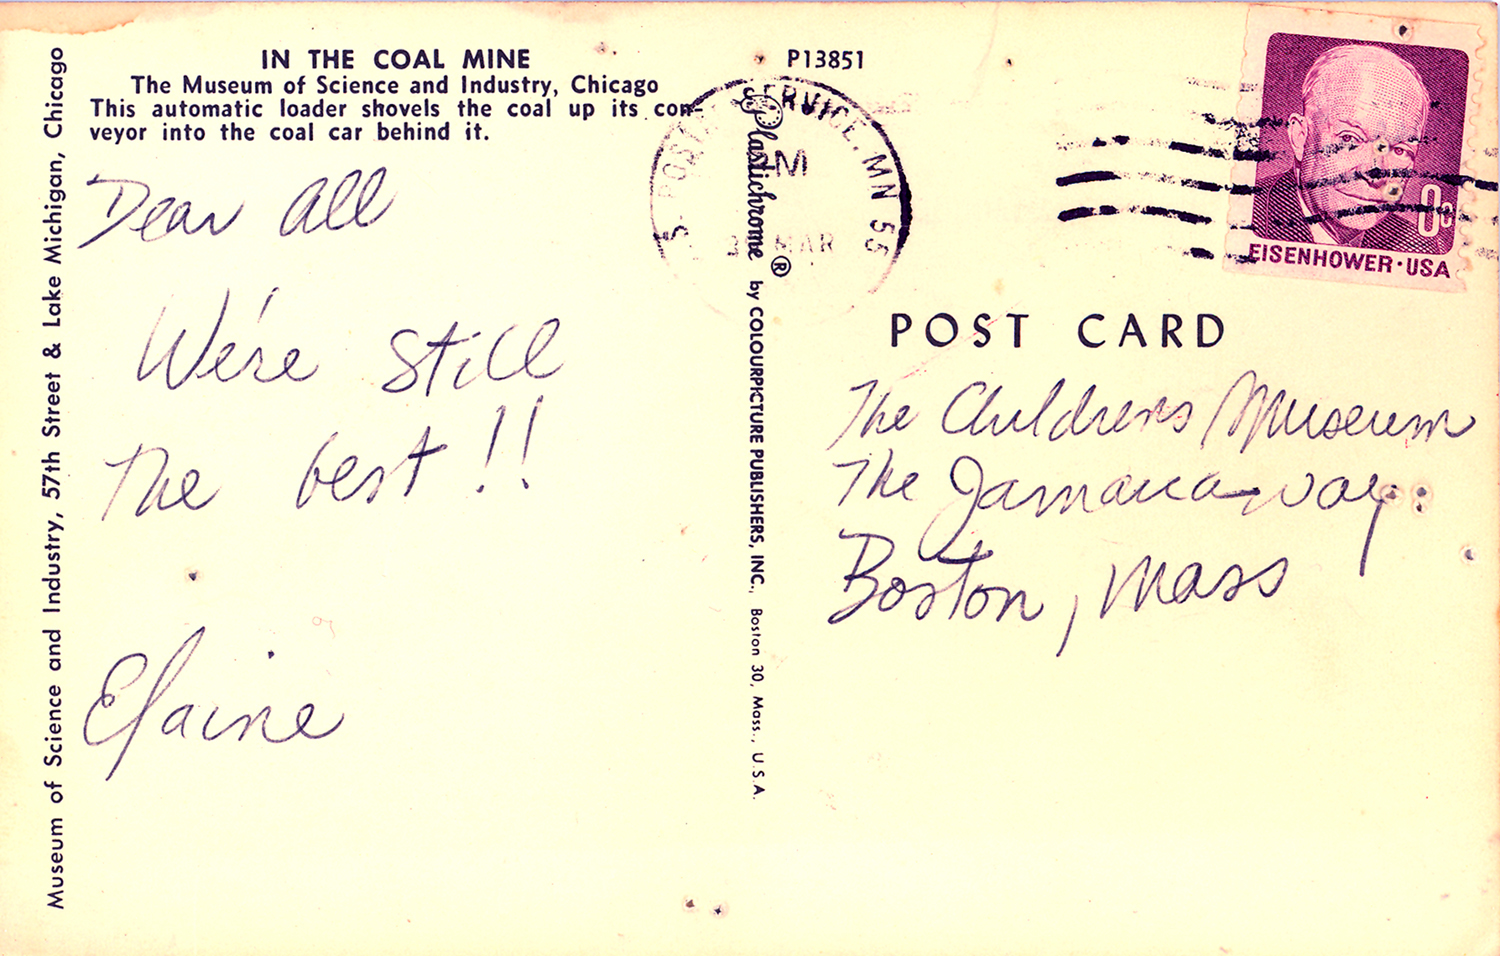 IN THE COAL MINE
The Museum of Science and Industry, Chicago
This automatic loader shovels the coal up its con-
veyor into the coal car behind it.
Dear all
We're still
the best!!
Elaine
Museum of Science and Industry, 57th Street & Lake Michigan, Chicago
P13851
Plastichrome ® by COLOURPICTURE PUBLISHERS, INC., Boston 30, Mass., U.S.A.
S. POSTAL SERVICE, MN 55
MAR
EISENHOWER·USA
POST CARD
The Childrens Museum
The Jamaicaway
Boston, Mass